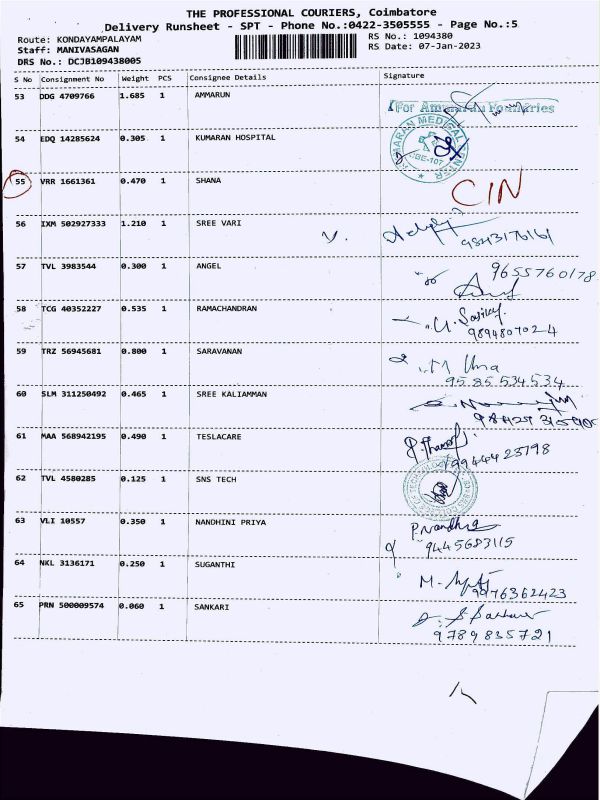 THE PROFESSIONAL COURIERS, Coimbatore
Delivery Runsheet - SPT - Phone No.:0422-3505555 - Page No.:5
Route: KONDAYAMPALAYAM
RS No.: 1094380
Staff: MANIVASAGAN
RS Date: 07-Jan-2023
DRS No.: DCJB109438005
S No Consignment No Weight PCS Consignee Details Signature
53 DDG 4709766 1.685 1 AMMARUN
For Ammarun Foundries
54 EDQ 14285624 0.305 1 KUMARAN HOSPITAL
KUMARAN MEDICAL CENTER
CBE-107
55 VRR 1661361 0.470 1 SHANA CIN
56 IXM 502927333 1.210 1 SREE VARI
9843176161
57 TVL 3983544 0.300 1 ANGEL 9655760178
58 TCG 40352227 0.535 1 RAMACHANDRAN
9894807024
59 TRZ 56945681 0.800 1 SARAVANAN M Uma
9585534534
60 SLM 311250492 0.465 1 SREE KALIAMMAN
61 MAA 568942195 0.490 1 TESLACARE
62 TVL 4580285 0.125 1 SNS TECH
63 VLI 10557 0.350 1 NANDHINI PRIYA
9445683115
64 NKL 3136171 0.250 1 SUGANTHI
9976362423
65 PRN 500009574 0.060 1 SANKARI
9789835721